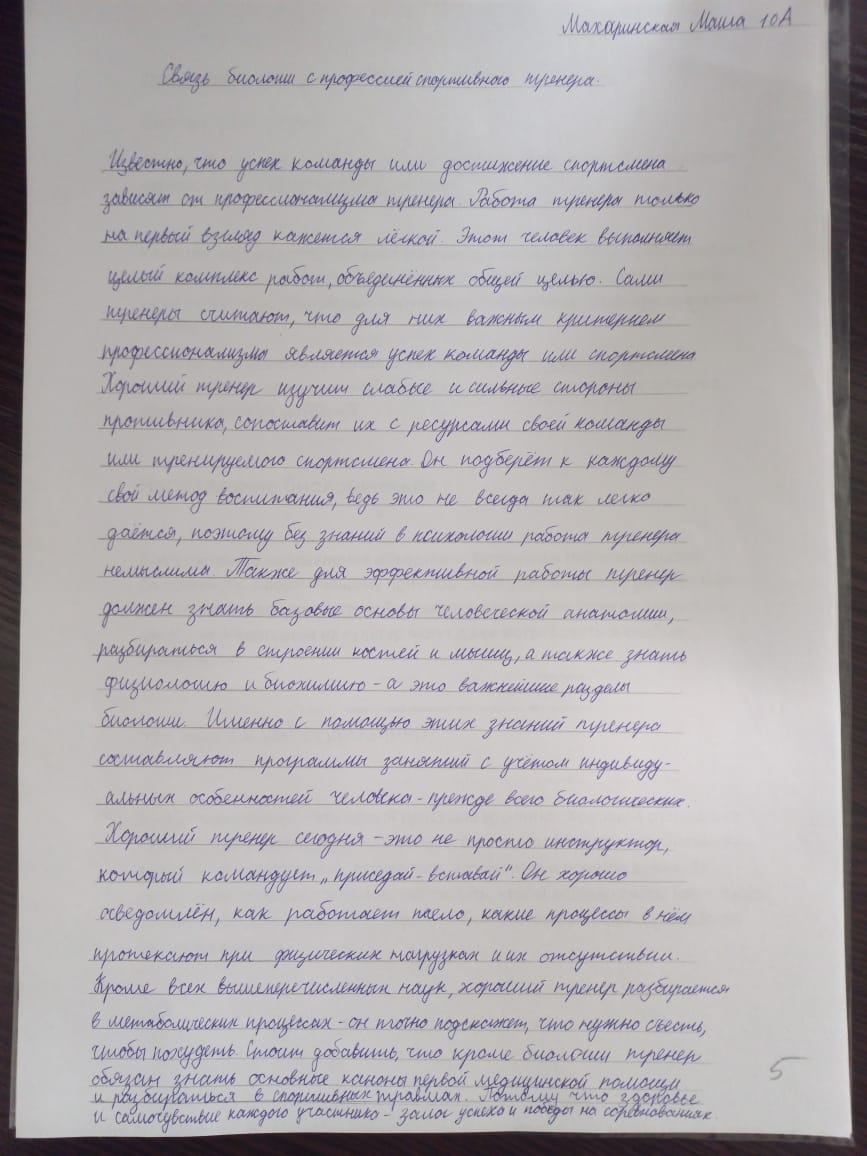 Махаринская Маша 10А
Связь биологии с профессией спортивного тренера.
Известно, что успех команды или достижение спортсмена
зависят от профессионализма тренера. Работа тренера только
на первый взгляд кажется лёгкой. Этот человек выполняет
целый комплекс работ, объединённых общей целью. Сами
тренеры считают, что для них важным критерием
профессионализмы является успех команды или спортсмена
Хороший тренер изучит слабые и сильные стороны
противника, сопоставит их с ресурсами своей команды
или тренируемого спортсмена. Он подберёт к каждому
свой метод воспитания, ведь это не всегда так легко
даётся, поэтому без знаний в психологии работа тренера
немыслима. Также для эффективной работы тренер
должен знать базовые основы человеческой анатомии,
разбираться в строении костей и мышц, а также знать
физиологию и биохимию - а это важнейшие разделы
биологии. Именно с помощью этих знаний тренера
составляют программы занятий с учётом индивиду-
альных особенностей человека - прежде всего биологических.
Хороший тренер сегодня - это не просто инструктор,
который командует „приседай - вставай". Он хорошо
осведомлён, как работает тело, какие процессы в нём
протекают при физических нагрузках и их отсутствии.
Кроме всех вышеперечисленных наук, хороший тренер разбирается
в метаболических процессах - он точно подскажет, что нужно съесть,
чтобы похудеть. Стоит добавить, что кроме биологии тренер
обязан знать основные каноны первой медицинской помощи
и разбираться в спортивных травмах. Потому что здоровье
и самочувствие каждого участника - залог успеха и победы на соревнованиях.
5